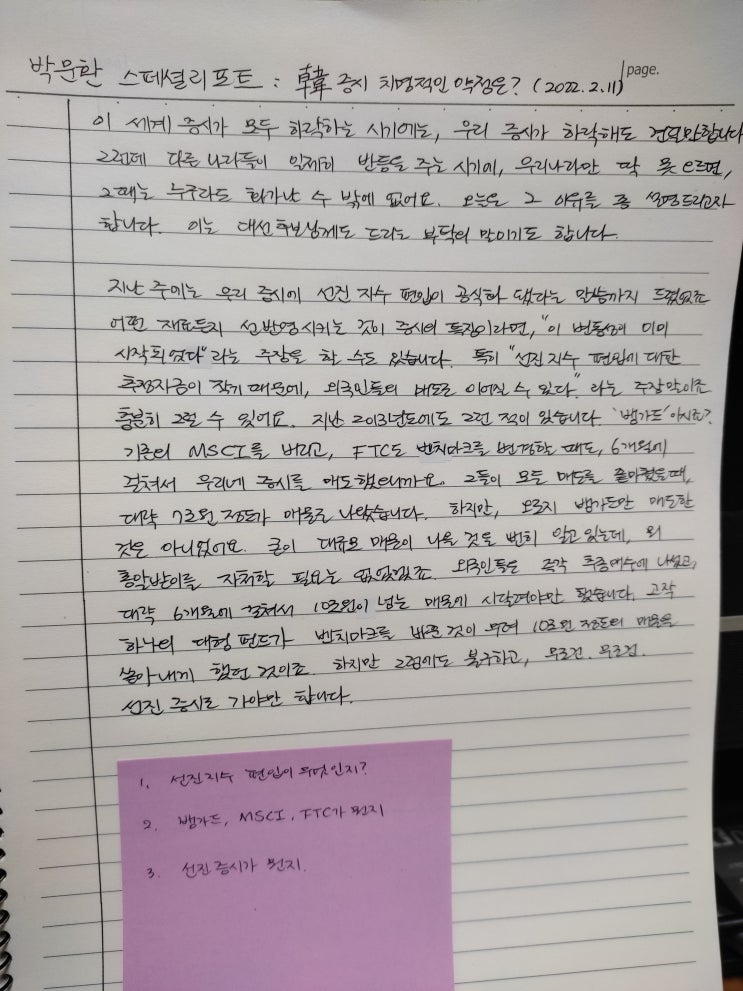 page.
박문환 스페셜리포트 : 韓 증시 치명적인 약점은? (2022.2.11)
이 세계 증시가 모두 하락하는 시기에는, 우리 증시가 하락해도 견딜만합니다
그런데 다른 나라들이 일제히 반등을 주는 시기에, 우리나라만 딱 못 오르면,
그때는 누구라도 화가날 수 밖에 없어요. 오늘은 그 이유를 좀 설명드리고자
합니다. 이는 대선후보님께도 드리는 부탁의 말이기도 합니다.
지난 주에는 우리 증시에 선진 지수 편입이 공식화 됐다는 말씀까지 드렸었죠
어떤 재료든지 선반영시키는 것이 증시의 특징이라면, "이 변동성에 이미
시작되었다" 라는 주장을 할 수도 있습니다. 특히 "선진 지수 편입에 대한
추정자금이 작기 때문에, 외국인들의 매도로 이어질 수 있다" 라는 주장말이죠
충분히 그럴 수 있어요. 지난 2013년도에도 그런 적이 있습니다. '뱅가드' 아시죠?
기존의 MSCI를 버리고, FTC로 벤치마크를 변경할 때도, 6개월에
걸쳐서 우리네 증시를 매도했으니까요. 그들이 모든 매도를 끝마쳤을때,
대략 7조원 정도가 매물로 나왔습니다. 하지만, 오로지 뱅가드만 매도한
것은 아니었어요. 큰이 대규모 매물이 나올 것을 뻔히 알고 있는데, 왜
총알받이를 자처할 필요는 없었겠죠. 외국인들은 즉각 추종매수에 나섰고,
대략 6개월에 걸쳐서 10조원이 넘는 매물에 시달려야만 했습니다. 고작
하나의 대형 펀드가 벤치마크를 바꾼 것이 무려 10조원 정도의 매물을
쏟아내게 했던 것이죠. 하지만 그럼에도 불구하고, 무조건. 무조건.
선진 증시로 가야만 합니다.
1. 선진지수 편입이 무엇인지?
2. 뱅가드, MSCI, FTC가 뭔지
3. 선진증시가 뭔지.